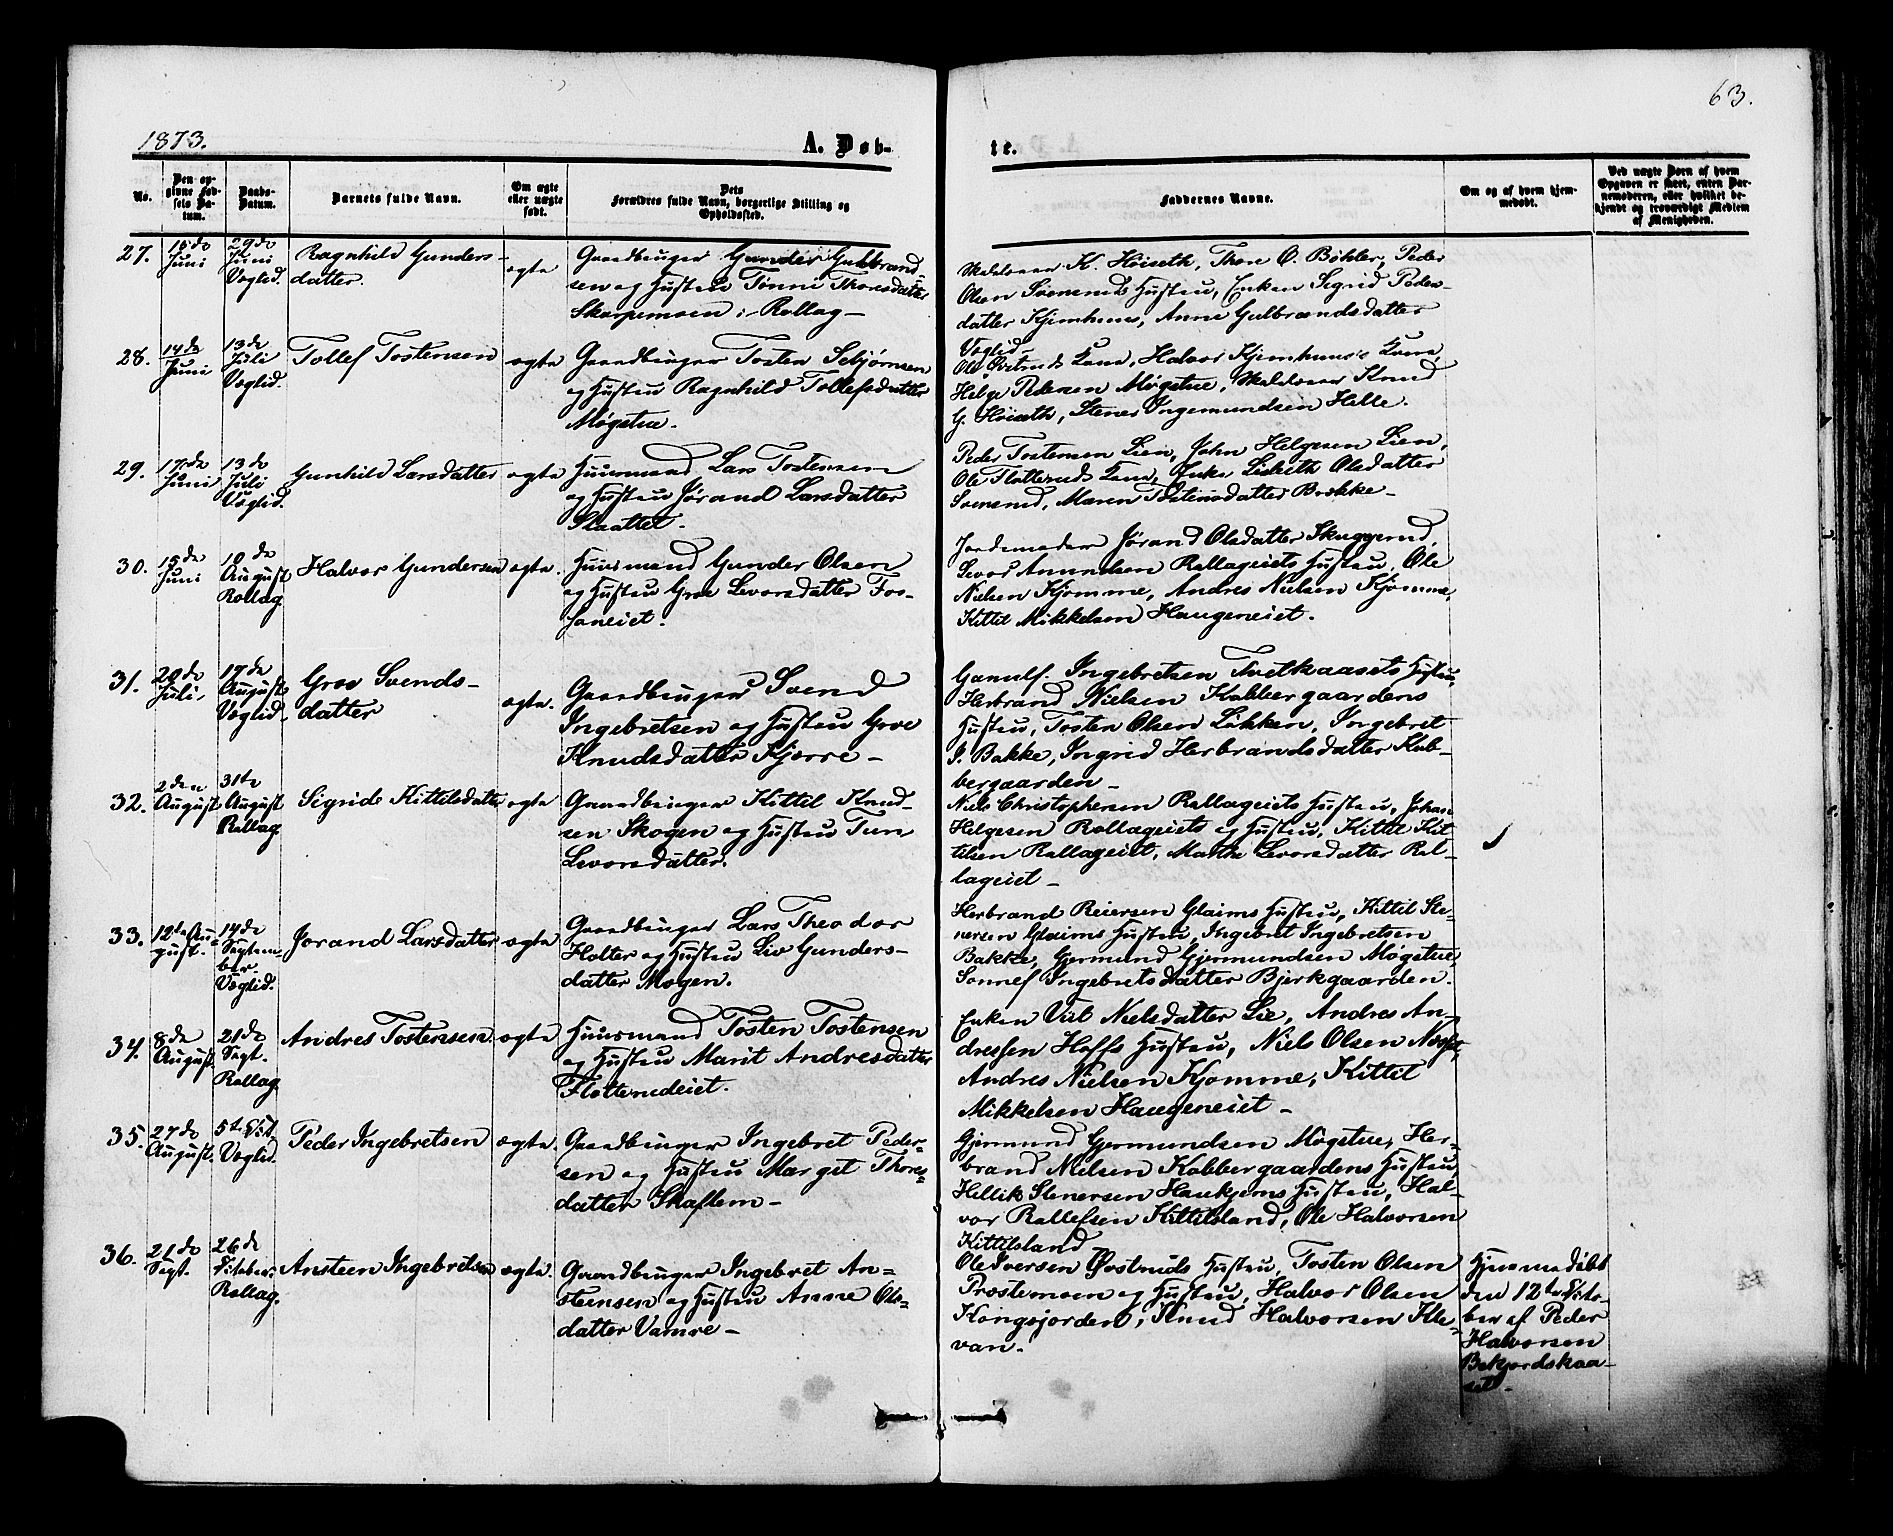 63.
1873.
A. Døb-
te.
No.
Den op-
givne Fød-
sels Da-
tum.
Daabs-
Datum.
Barnets fulde Navn.
Om ægte
eller uægte
født.
Dets
Forældres fulde Navn, borgerlige Stilling og
Opholdssted.
Faddernes Navne.
Om og af hvem hjem-
medøbt.
Ved uægte Børn af hvem
Opgaven er skeet, enten Bar-
nemoderen, eller hvilket be-
kjendt og troværdigt Medlem
af Menigheden.
27.
15de
Juni
29de
Juni
Veglid.
Ragnhild Gunders-
datter.
ægte
Gaardbruger Gunder Gulbrand-
sen og Hustru Tønni Thoresdatter
Skarpemoen i Rollag-
Skolelærer K. Høiseth, Thore O. Bøhler, Peder
Olsen Svensruds Hustru, Enken Sigrid Peders-
datter Kjemhuus, Anne Gulbrandsdatter
Veglid-
28.
14de
Juni
13de
Juli
Veglid.
Tollef Tostensen
ægte
Gaardbruger Tosten Sebjørnsen
og Hustru Ragnhild Tollefsdatter
Møgstue.
Ole Østruds Kone, Halvor Kjemhuus's Kone,
Helge Pedersen Møgstue, Skolelærer Knud
G. Høiseth, Stener Ingemundsen Helle.
29.
17de
Juni
13de
Juli
Veglid.
Gunhild Larsdatter
ægte
Huusmand Lars Tostensen
og Hustru Jørand Larsdatter
Slaattet.
Peder Tostensen Lien, John Helgesen Lien,
Ole Flotteruds Kone, Enke Lisbeth Olsdatter
Svensrud, Maren Tostensdatter Brække-
30.
15de
Juni
10de
August
Rollag
Halvor Gundersen
ægte.
Huusmand Gunder Olsen
og Hustru Groe Levorsdatter Fos-
saneiet.
Jordemoder Jørand Olsdatter Skuggerud,
Levor Amundsen Rollageiets Hustru, Ole
Nielsen Kjomme, Andres Nielsen Kjomme,
Kittil Mikkelsen Haugeneiet.
31.
20de
Juli.
17de
August
Veglid-
Groe Svends-
datter
ægte.
Gaardbruger Svend
Ingebretsen og Hustru Groe
Knudsdatter Kjerre-
Gunulf Ingebretsen Tvetkaasets Hustru,
Herbrand Nielsen Kobbergaardens
Hustru, Tosten Olsen Løkken, Ingebret
I. Bakke, Ingrid Herbrandsdatter Kob-
bergaarden-
32.
2den
August
31te
August
Rollag
Sigrid Kittilsdatter
ægte
Gaardbruger Kittil Knud-
sen Skogen og Hustru Tun
Levorsdatter.
Niels Christophersen Rollageiets Hustru, Johan
Helgesen Rollageiets og Hustru, Kittil Kit-
tilsen Rollageiet, Marthe Levorsdatter Rol-
lageiet-
33.
12te Au-
gust.
14de
Septem-
ber
Veglid.
Jorand Larsdatter
ægte
Gaardbruger Lars Theodor
Holter og Hustru Liv Gunders-
datter Mogen.
Herbrand Reiersen Glaims Hustru, Kittil Ste-
nersen Glaims Hustru, Ingebret Ingebretsen
Bakke, Gjermund Gjermundsen Møgstue,
Sonnef Ingebretsdatter Bjerkgaarden.
34.
8de
August.
21de
Sept.
Rollag
Andres Tostensen
ægte
Huusmand Tosten Tostensen
og Hustru Marit Andresdatter
Flotterudeiet.
Enken Veit Nielsdatter Lie, Andres An-
dresen Hoffs Hustru, Niels Olsen
Andres Nielsen Kjomme, Kittil
Mikkelsen Haugeneiet-
35.
27de
August.
5te Oct.
Veglid.
Peder Ingebretsen
ægte.
Gaardbruger Ingebret Peder-
sen og Hustru Margit Thores-
datter Skaflem-
Gjermund Gjermundsen Møgstue, Her-
brand Nielsen Kobbergaardens Hustru,
Hellik Stenersen Haukjems Hustru, Hal-
vor Rollefsen Kittilsland, Ole Halvorsen
Kittilsland
36.
21de
Sept.
26de
October.
Rollag.
Ansteen Ingebretsen
ægte.
Gaardbruger Ingebret An-
steensen og Hustru Anne Ols-
datter Vamre-
Ole Iversen Østruds Hustru, Tosten Olsen
Prestemoen og Hustru, Halvor Olsen
Kongsjorden, Knud Halvorsen Kle-
van.
Hjemmedøbt
den 12te Octo-
ber af Peder
Halvorsen
Bekjordskaa-
set-